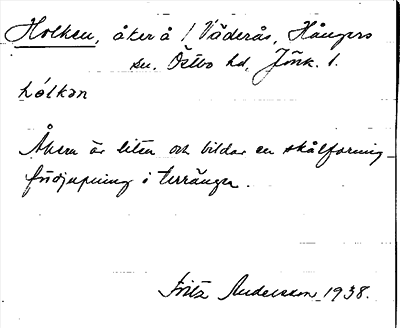 Holken, åker å / Väderås, Hångers
sn. Östbo hd, Jönk. l.
hólkən
Åkern är liten och bildar en skålformig
fördjupning i terrängen.
Fritz Andersson 1938.